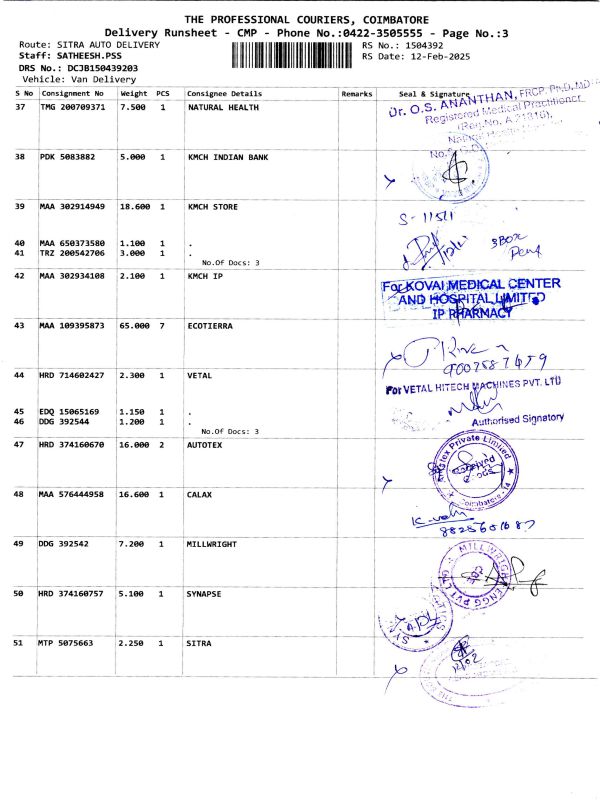 THE PROFESSIONAL COURIERS, COIMBATORE
Delivery Runsheet - CMP - Phone No.:0422-3505555 - Page No.:3
Route: SITRA AUTO DELIVERY RS No.: 1504392
Staff: SATHEESH.PSS RS Date: 12-Feb-2025
DRS No.: DCJB150439203
Vehicle: Van Delivery
S No Consignment No Weight PCS Consignee Details Remarks Seal & Signature
37 TMG 200709371 7.500 1 NATURAL HEALTH
Dr. O.S. ANANTHAN, FRCP. Ph.D, MD
Registered Medical Practitioner
38 PDK 5083882 5.000 1 KMCH INDIAN BANK
39 MAA 302914949 18.600 1 KMCH STORE
S - 11511
40 MAA 650373580 1.100 1 .
41 TRZ 200542706 3.000 1 .
No.Of Docs: 3
3 BOX
42 MAA 302934108 2.100 1 KMCH IP
For KOVAI MEDICAL CENTER
AND HOSPITAL LIMITED
IP PHARMACY
43 MAA 109395873 65.000 7 ECOTIERRA
44 HRD 714602427 2.300 1 VETAL
For VETAL HITECH MACHINES PVT. LTD
45 EDQ 15065169 1.150 1 .
46 DDG 392544 1.200 1 .
No.Of Docs: 3
Authorised Signatory
47 HRD 374160670 16.000 2 AUTOTEX
Private Limited
Coimbatore - 14
48 MAA 576444958 16.600 1 CALAX
49 DDG 392542 7.200 1 MILLWRIGHT
MILLWRIGHT ENGG PVT
50 HRD 374160757 5.100 1 SYNAPSE
51 MTP 5075663 2.250 1 SITRA
12/02